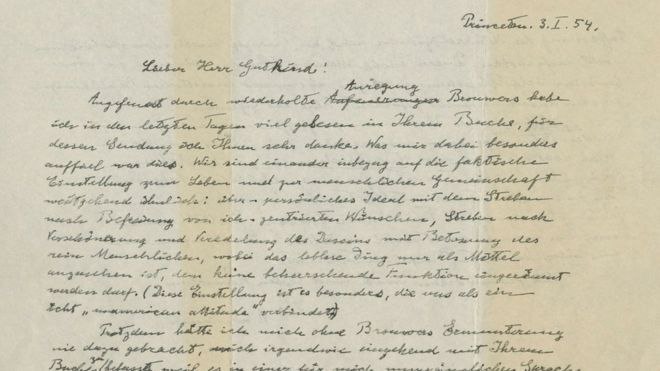 Princeton. 3. I. 54.
Lieber Herr Gutkind!
Anregung
Angefeuert durch wiederholte Brouwers habe
ich in den letzten Tagen viel gelesen in Ihrem Buche, für
dessen Sendung ich Ihnen sehr danke. Was mir dabei besonders
auffiel war dies. Wir sind einander inbezug auf die faktische
Einstellung zum Leben und zur menschlichen Gemeinschaft
weitgehend ähnlich: über-persönliches Ideal mit dem Streben
nach Befreiung von ich-zentrierten Wünschen, Streben nach
Verschönerung und Veredelung des Daseins mit Betonung des
rein Menschlichen, wobei das leblose Ding nur als Mittel
anzusehen ist, dem keine beherrschende Funktion eingeräumt
werden darf. (Diese Einstellung ist es besonders, die uns als ein
echt „unamerican attitude" verbindet)
Trotzdem hätte ich mich ohne Brouwers Ermunterung
nie dazu gebracht, mich irgendwie eingehend mit Ihrem
Buch zu befassen, weil es in einer für mich unzugänglichen Sprache